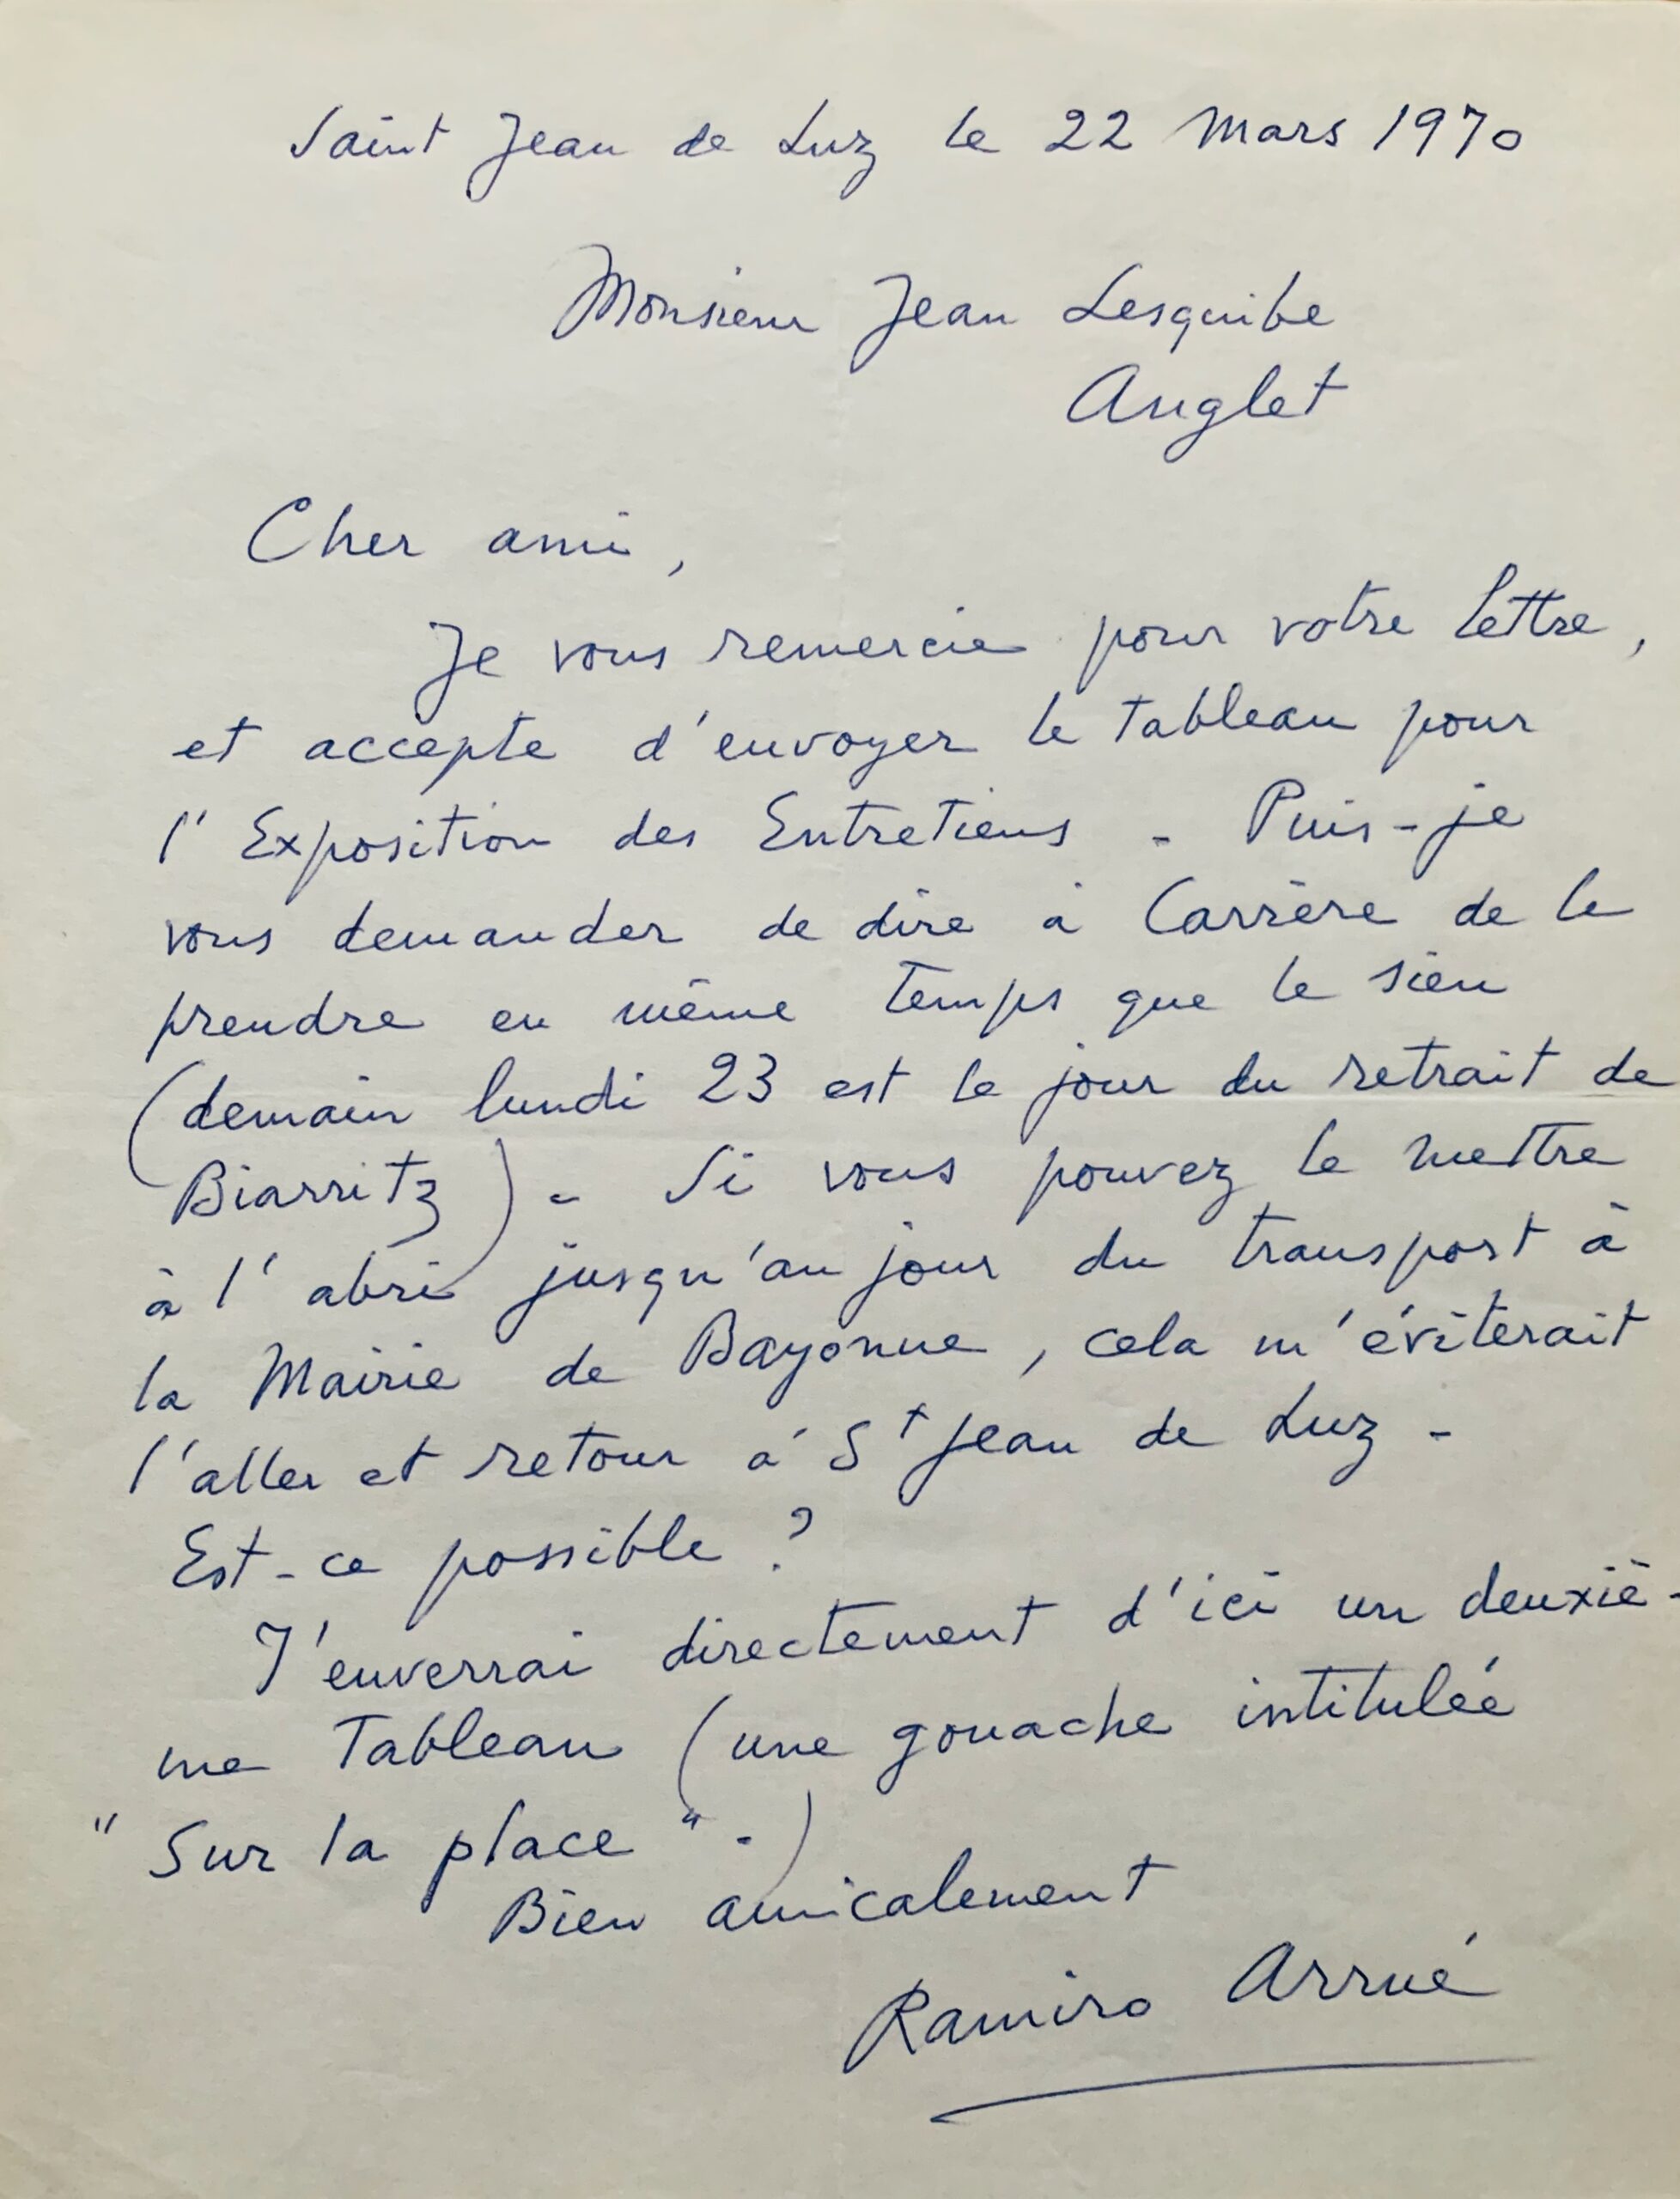 Saint Jean de Luz le 22 Mars 1970
Monsieur Jean Lesquibe
Anglet
Cher ami,
Je vous remercie pour votre lettre,
et accepte d'envoyer le tableau pour
l'Exposition des Entretiens - Puis-je
vous demander de dire à Carrère de le
prendre en même temps que le sien
(demain lundi 23 est le jour du retrait de
Biarritz) - Si vous pouvez le mettre
à l'abri jusqu'au jour du transport à
la Mairie de Bayonne, cela m'éviterait
l'aller et retour à St Jean de Luz -
Est-ce possible ?
J'enverrai directement d'ici un deuxiè-
me Tableau (une gouache intitulée
"Sur la place" -)
Bien amicalement
Ramiro Arrué